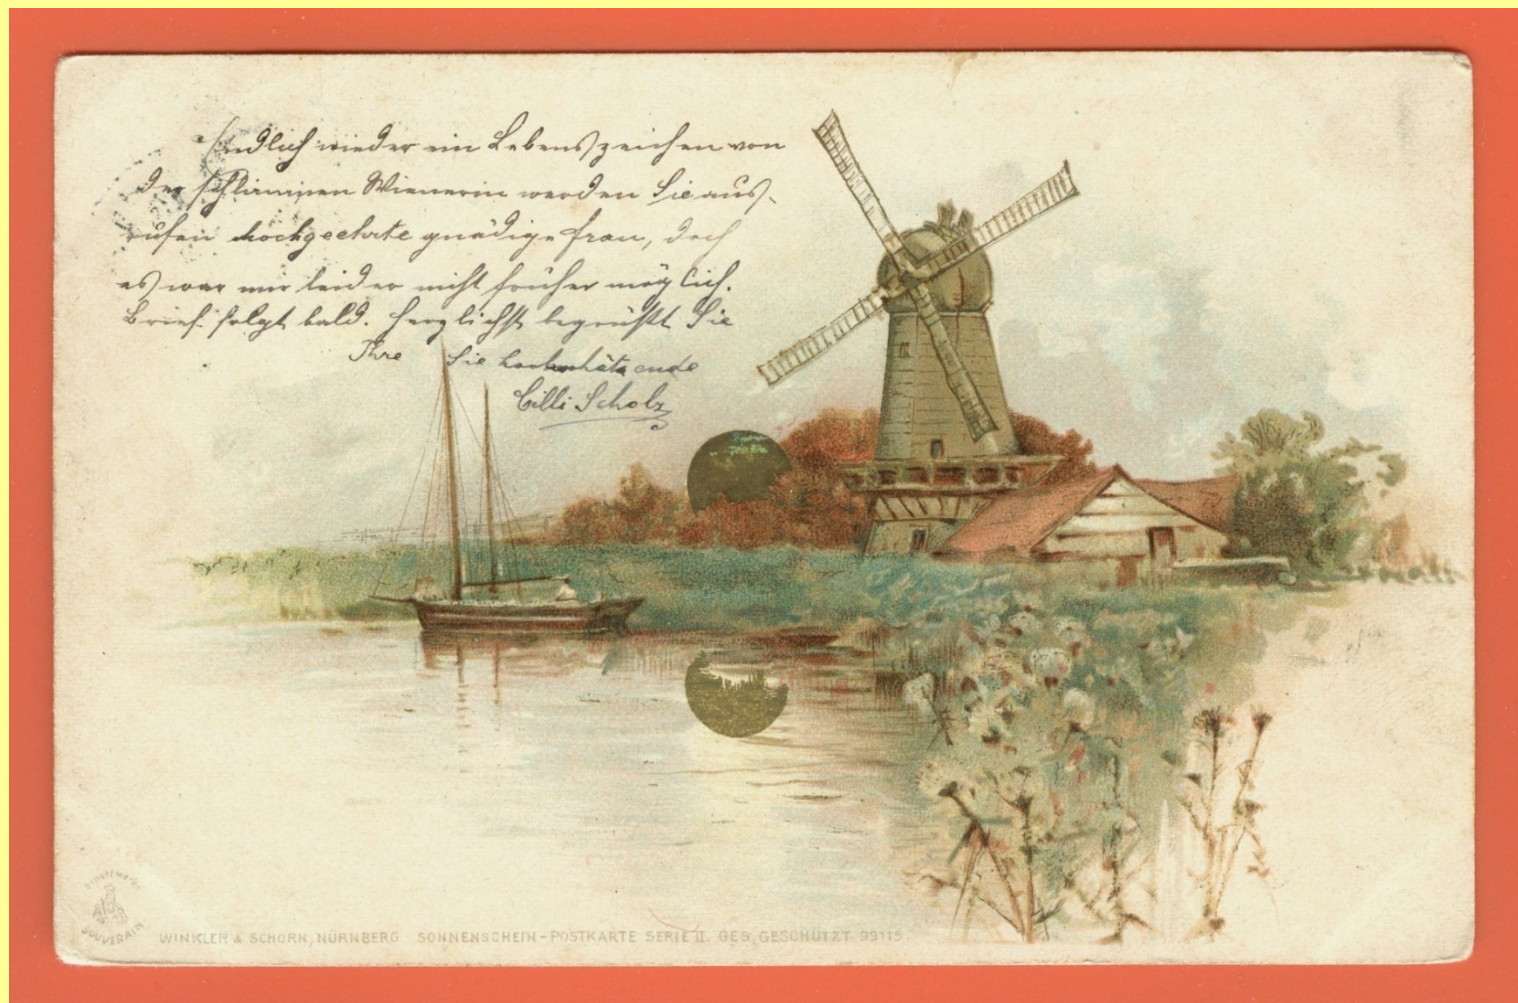 Endlich wieder ein Lebenszeichen von
der schlimmen Wienerin werden Sie aus-
rufen hochgeehrte gnädige Frau, doch
es war mir leider nicht früher möglich.
Brief folgt bald. Herzlichst begrüßt Sie
Ihre Sie hochschätzende
Cilli Scholz
SCHUTZMARKE
SOUVERAIN
WINKLER & SCHORN, NÜRNBERG SONNENSCHEIN-POSTKARTE SERIE II. GES. GESCHÜTZT 99115.